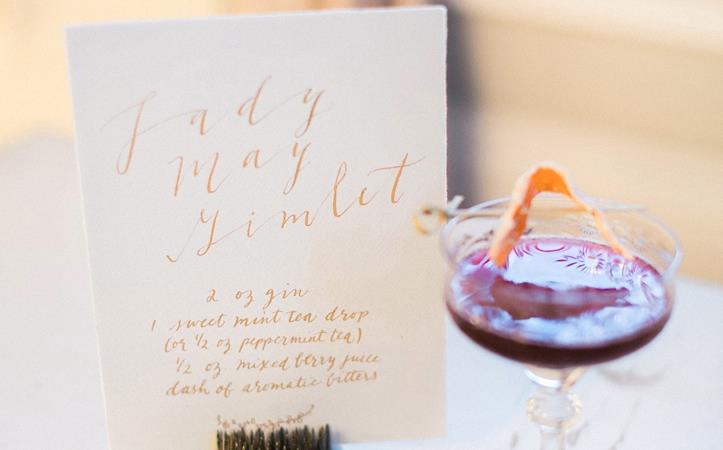 Lady
May
Gimlet
2 oz gin
1 sweet mint tea drop
(or 1/2 oz peppermint tea)
1/2 oz mixed berry juice
dash of aromatic bitters